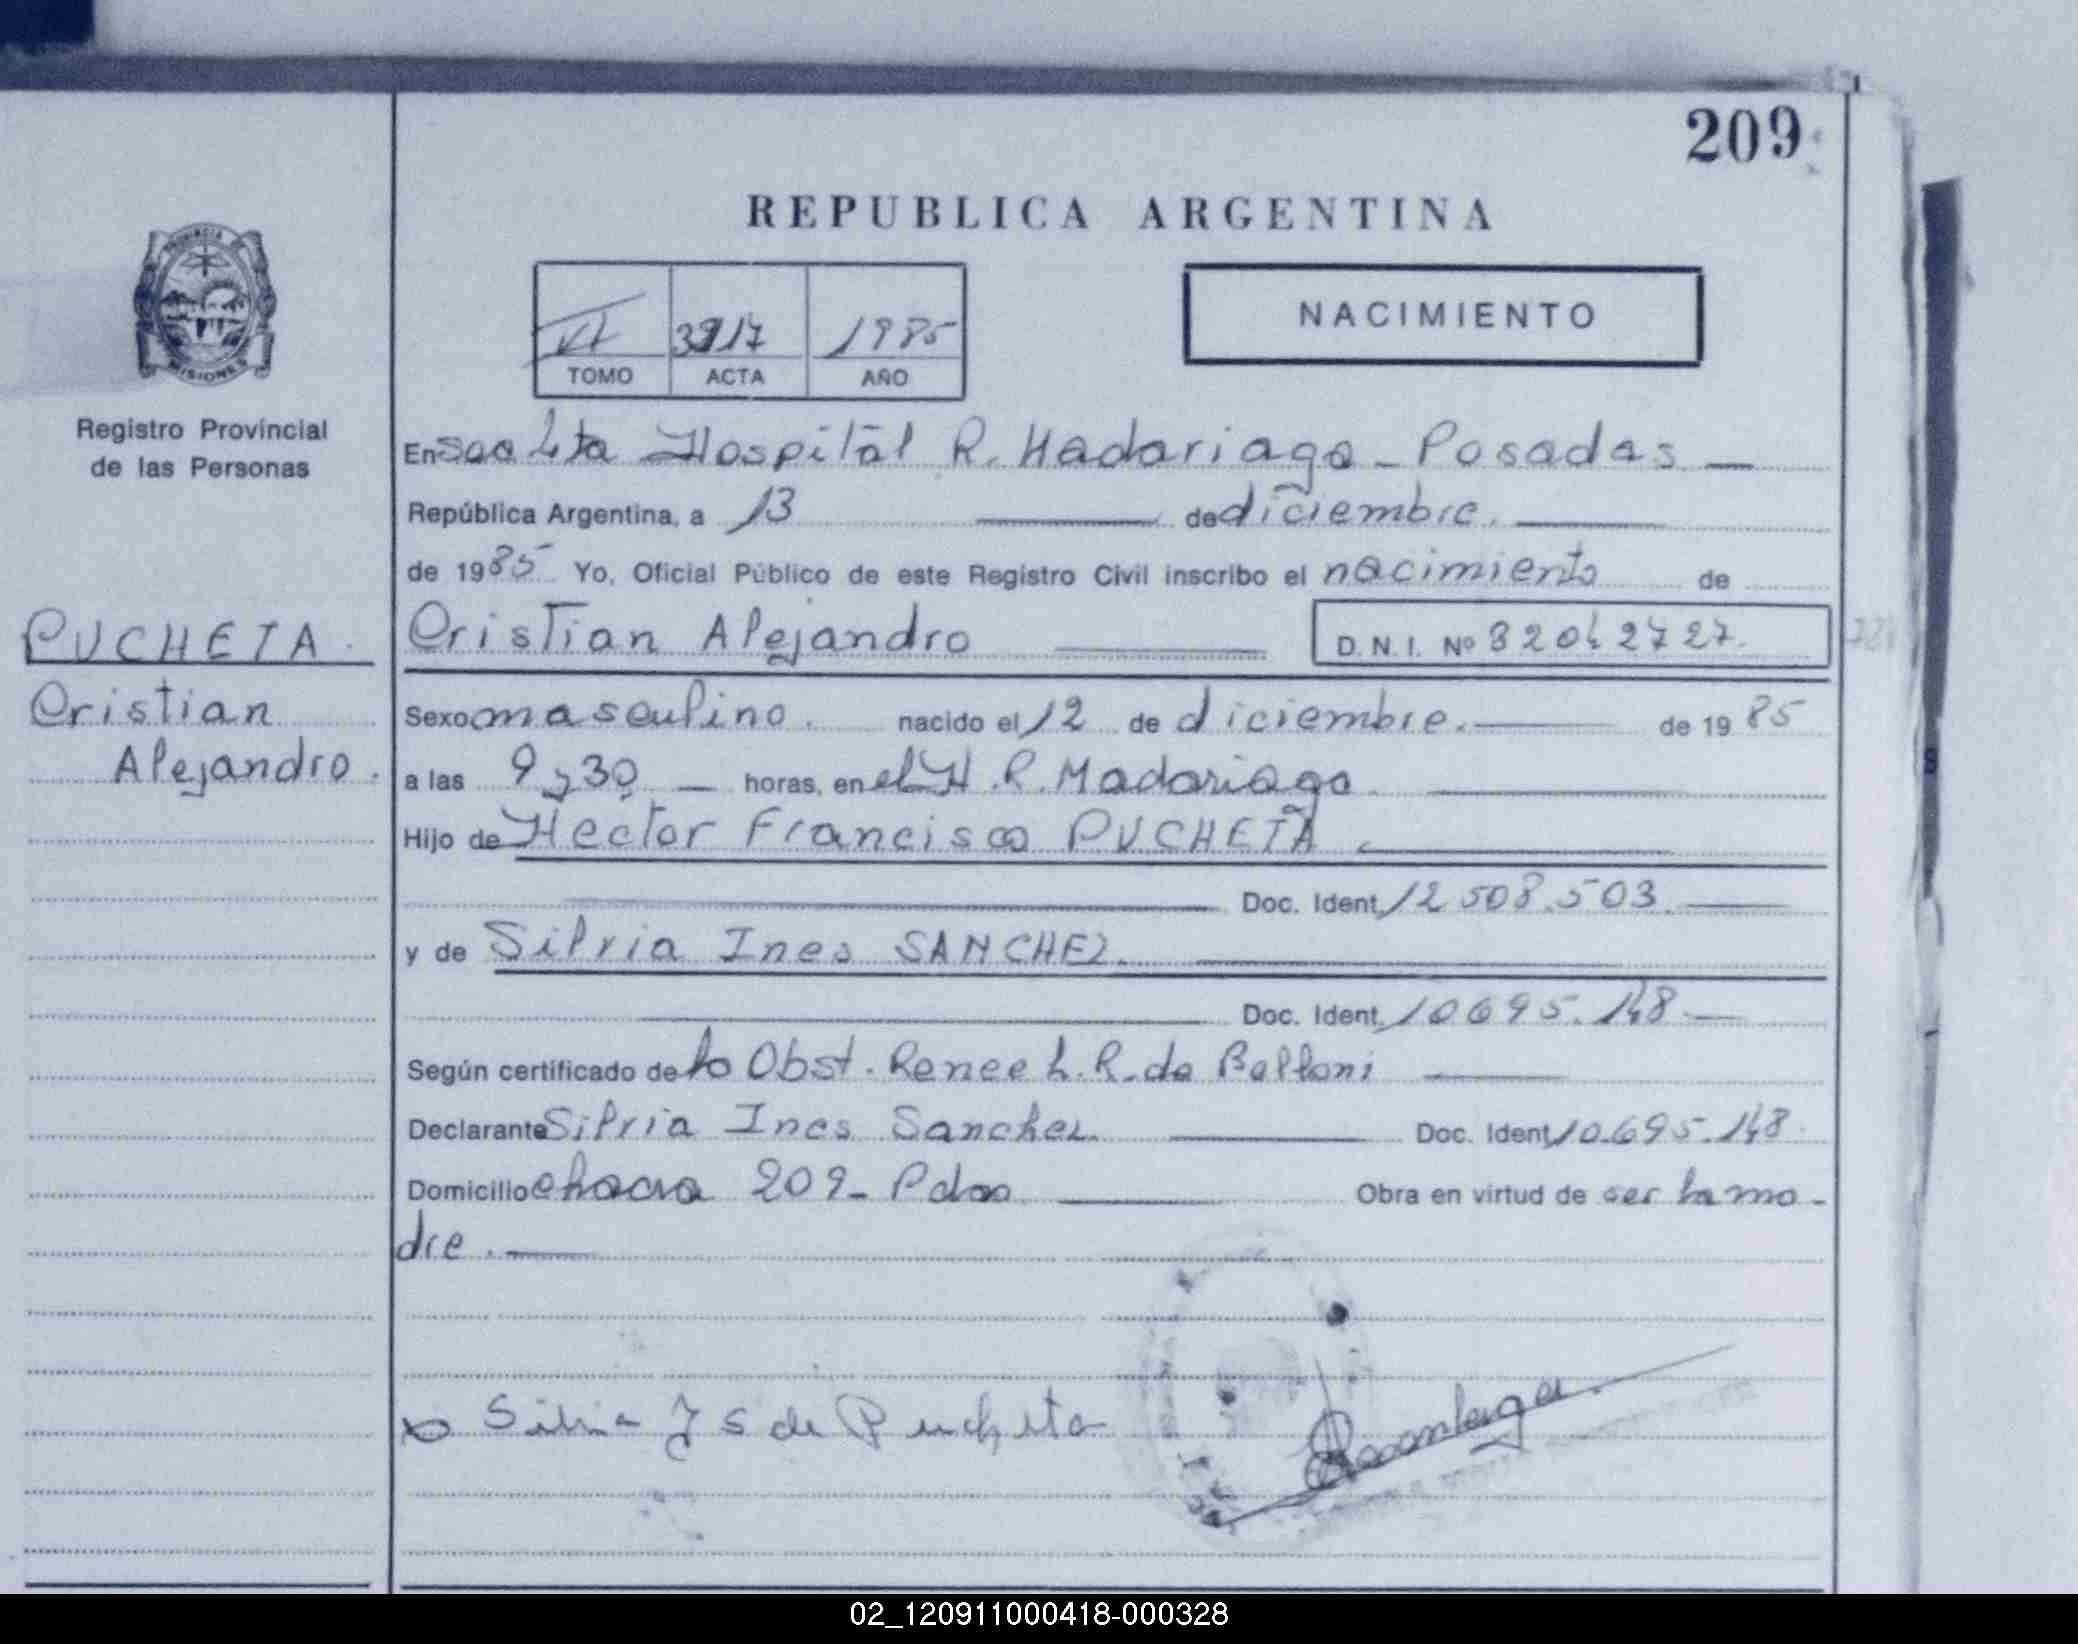 209
REPUBLICA ARGENTINA
PROVINCIA DE
MISIONES
VI 3917 1985
TOMO ACTA AÑO
NACIMIENTO
Registro Provincial
de las Personas
PUCHETA
Cristian
Alejandro.
En Hospital R. Madariaga - Posadas
República Argentina, a 13 de diciembre.
de 1985 Yo, Oficial Público de este Registro Civil inscribo el nacimiento de
Cristian Alejandro D.N.I. Nº
Sexo masculino. nacido el 12 de diciembre. de 1985
a las 9 y 30 horas, en el H. R. Madariaga
Hijo de Hector Francisco PUCHETA
Doc. Ident. 12508.503
y de Silvia Ines SANCHEZ.
Doc. Ident. 10695.148
Según certificado de la Obst. Renee L. R. de Belloni
Declarante Silvia Ines Sanchez Doc. Ident. 10.695.148
Domicilio chacra 209 - Pdas Obra en virtud de ser la ma-
dre.
Silvia I S de Pucheta
02_120911000418-000328